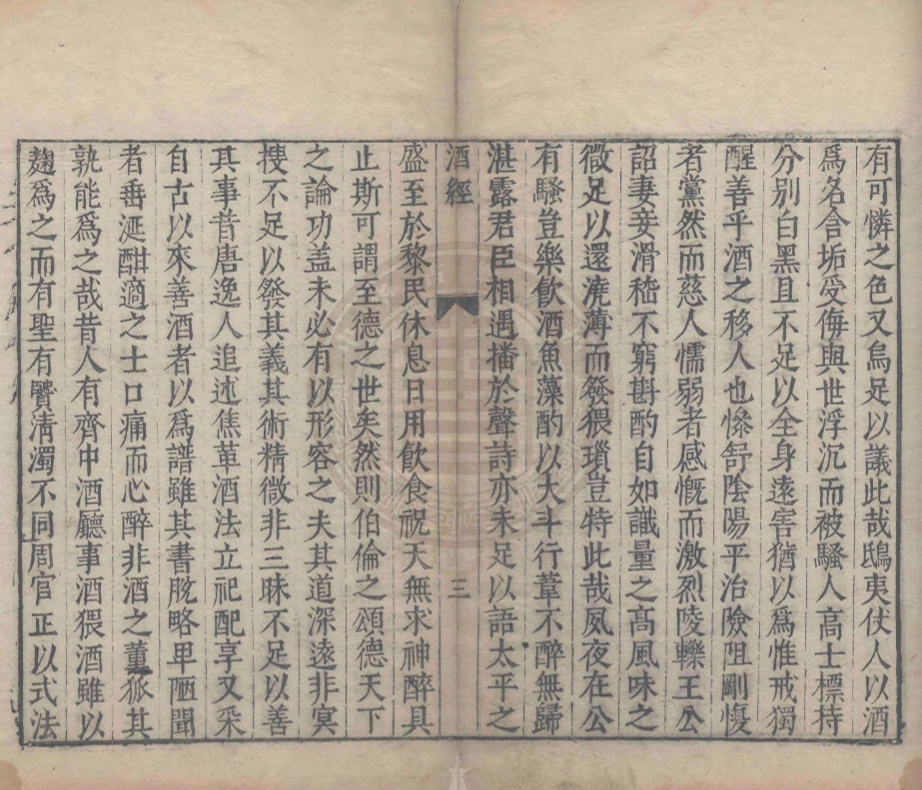 有可憐之色又烏足以議此哉鴟夷仗人以酒
爲名含垢受侮與世浮沉而被騷人高士標持
分別白黑且不足以全身遠害猶以爲惟戒獨
醒善乎酒之移人也慘舒陰陽平治險阻剛愎
者黨然而慈人懦弱者感慨而激烈陵轢王公
詔妻妾滑稽不窮斟酌自如識量之高風味之
微足以還澆薄而發猥瑣豈特此哉夙夜在公
有騷豈樂飲酒魚藻酌以大斗行葦不醉無歸
湛露君臣相遇播於聲詩亦未足以語太平之
酒經
三
盛至於黎民休息日用飲食祝天無求神醉具
止斯可謂至德之世矣然則伯倫之頌德天下
之論功盖未必有以形容之夫其道深遠非㝠
搜不足以發其義其術精微非三昧不足以善
其事昔唐逸人追述焦革酒法立祀配享又采
自古以來善酒者以爲譜雖其書脫略卑陋聞
者垂涎酣適之士口痛而心醉非酒之董狐其
孰能爲之哉昔人有齊中酒廳事酒猥酒雖以
麴爲之而有聖有賢清濁不同周官正以式法